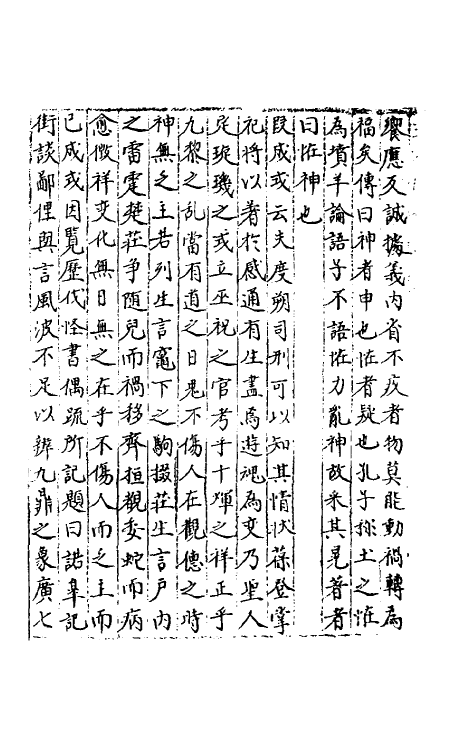 響應反誠搊義内省不疚者物莫能動禍轉為
福矣傳曰神者申也恠者疑也孔子稱土之恠
為墳羊論語子不語恠力亂神故采其晃著者
曰恠神也
段成式云夫度朔司刑可以知其情狀葆登掌
祀将以著於感通有生盡焉遊魂為變乃聖人
定璇璣之或立巫祝之官考乎十煇之祥正乎
九黎之亂當有道之日鬼不傷人在觀德之時
神無乏主若列生言竈下之駒掇莊生言户内
之雷霆楚莊争随兕而禍移齊桓觀委蛇而病
愈徴祥変化無日無之在乎不傷人而乏主而
已成或因覧歷代怪書偶疏所記題曰諾臯記
街談鄙俚與言風波不足以辨九鼎之象廣七